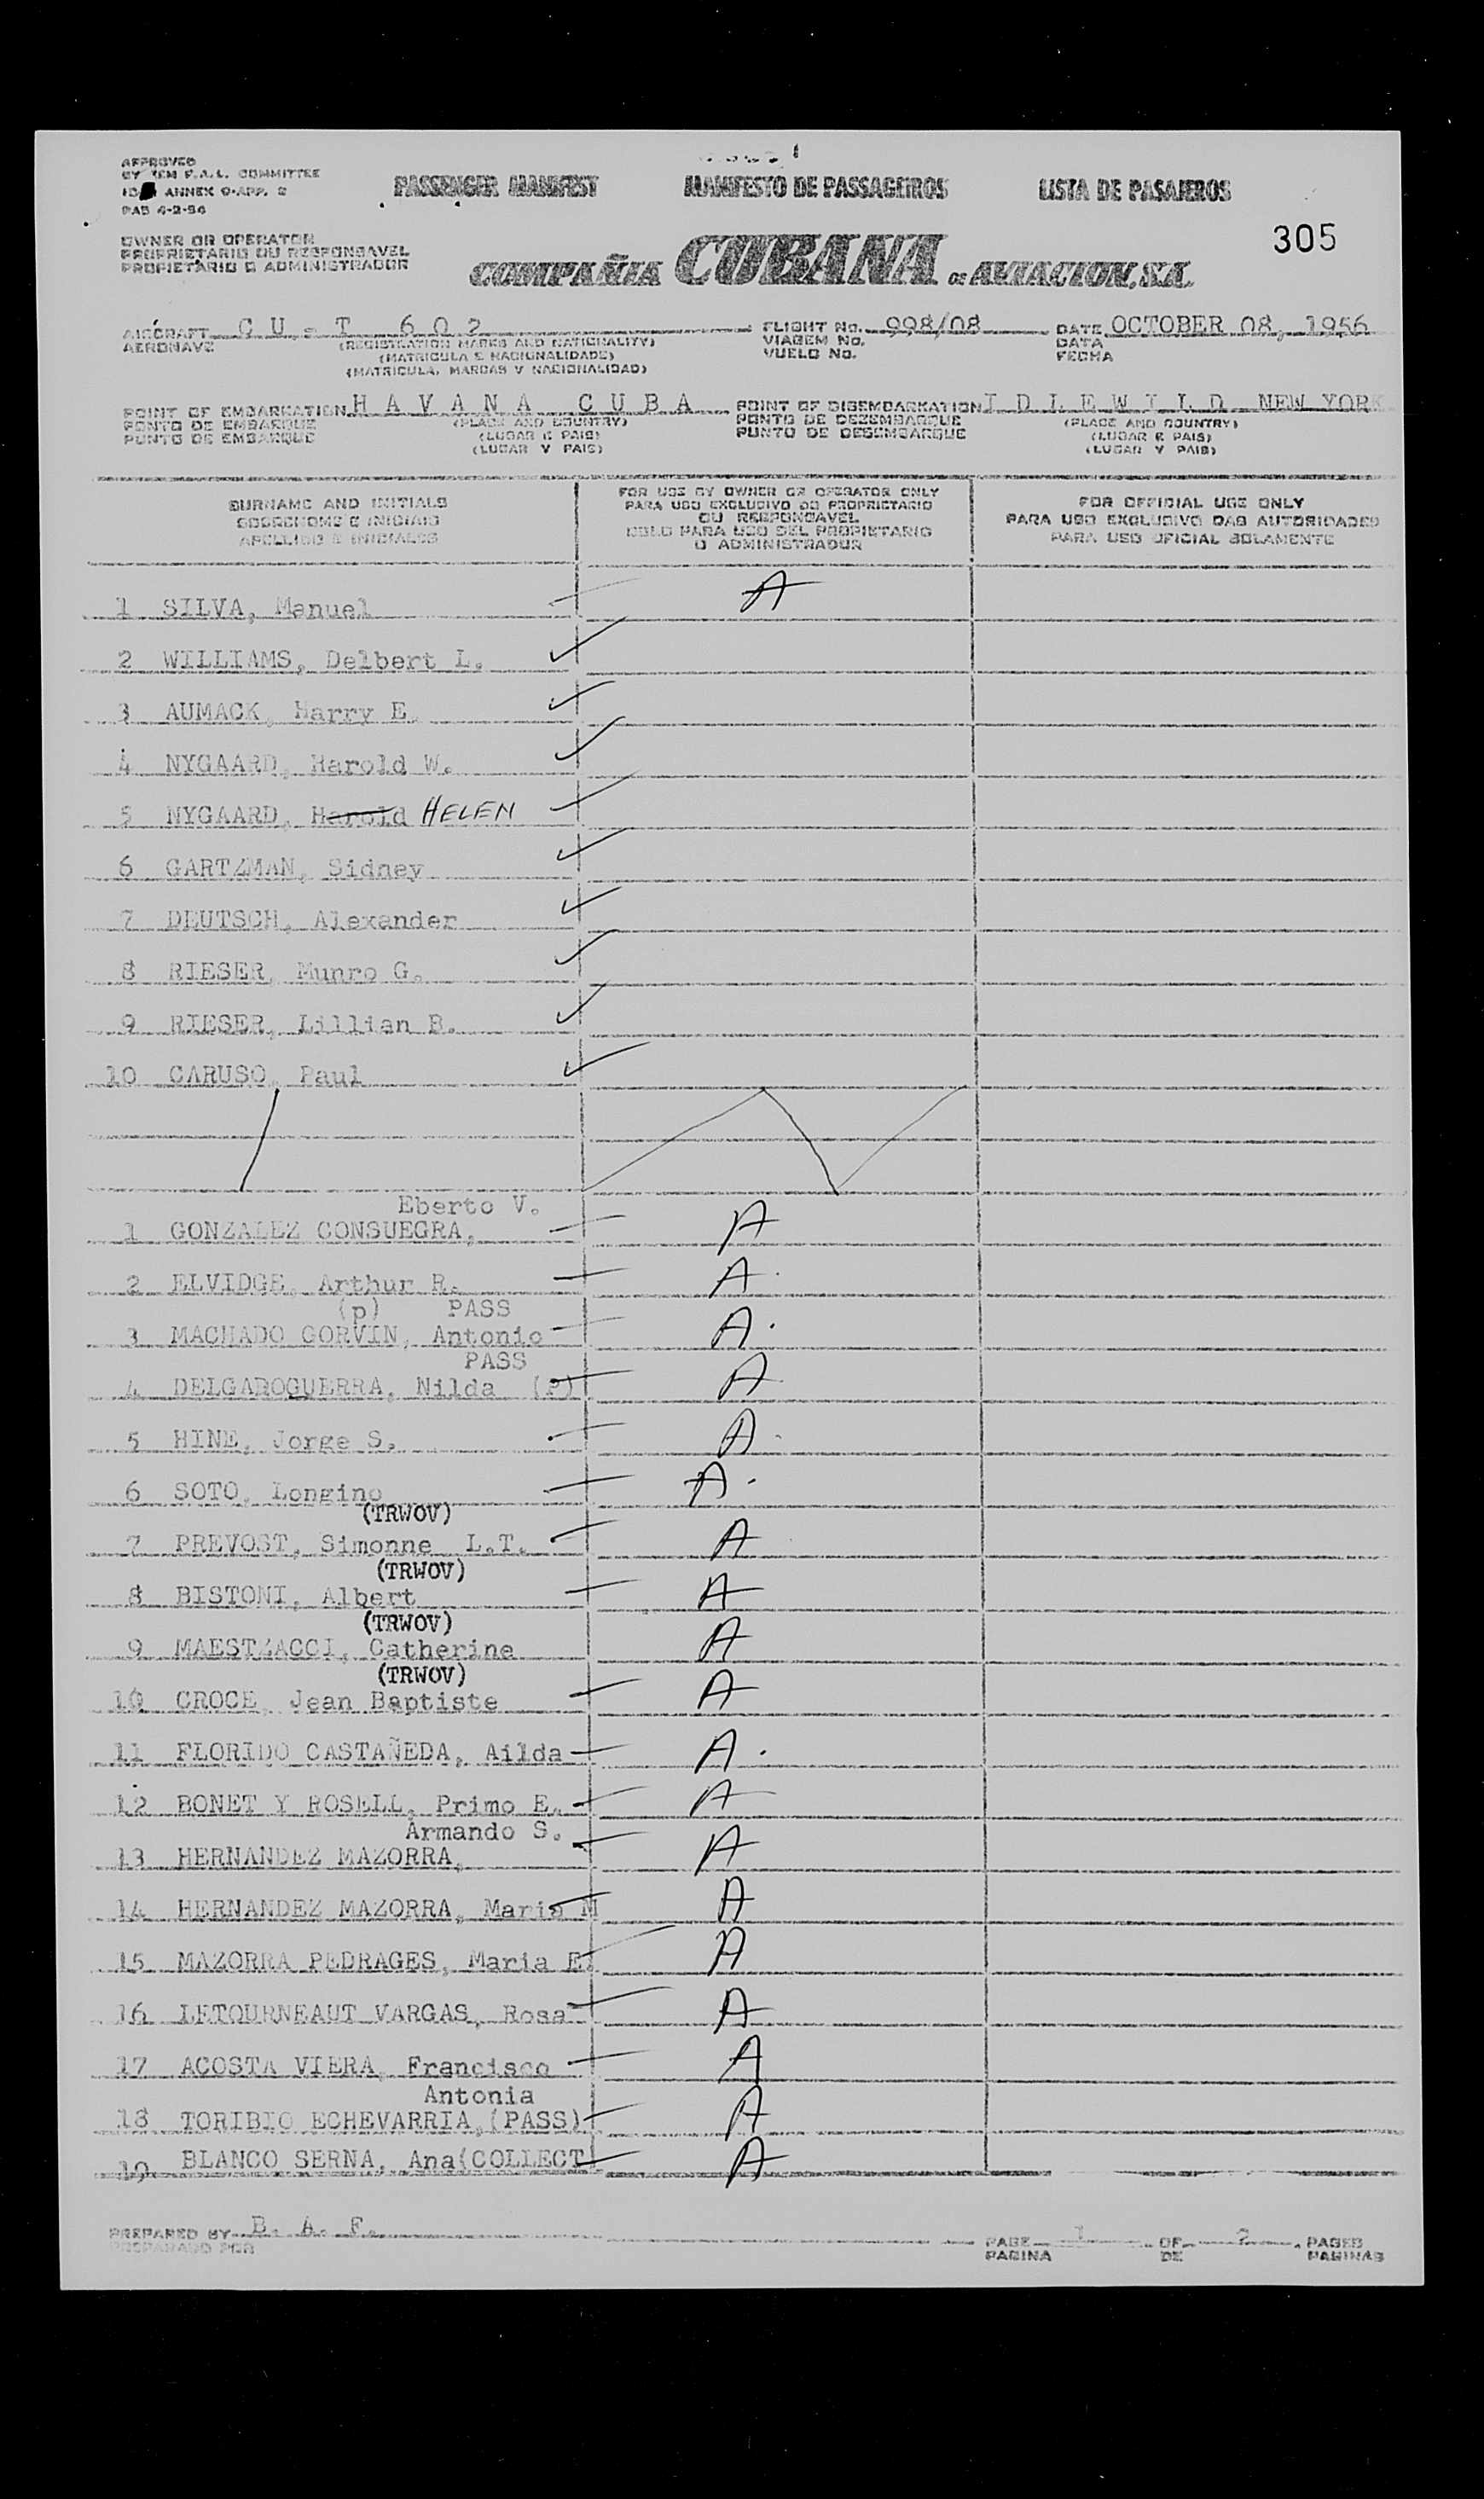 APPROVED
BY IEM F.A.L. COMMITTEE
ANNEX 9-APP. 2
PAB 4-2-54
PASSENGER MANIFEST
MANIFESTO DE PASSAGEIROS
LISTA DE PASAJEROS
305
OWNER OR OPERATOR
PROPRIETARIO OU RESPONSAVEL
PROPIETARIO O ADMINISTRADOR
COMPAÑIA CUBANA DE AVIACION, S.A.
AIRCRAFT C U - T 6 0 2 FLIGHT No. 998/08 DATE OCTOBER 08, 1956
AERONAVE (REGISTRATION MARKS AND NATIONALITY) VIAGEM No. DATA
(MATRICULA E NACIONALIDADE) VUELO No. FECHA
(MATRICULA, MARCAS Y NACIONALIDAD)
POINT OF EMBARKATION H A V A N A C U B A POINT OF DISEMBARKATION I D L E W I L D NEW YORK
PONTO DE EMBARQUE (PLACE AND COUNTRY) PONTO DE DEZEMBARQUE (PLACE AND COUNTRY)
PUNTO DE EMBARQUE (LUGAR E PAIS) PUNTO DE DESEMBARQUE (LUGAR E PAIS)
(LUGAR Y PAIS) (LUGAR Y PAIS)
SURNAME AND INITIALS
SOBRENOME E INICIAIS
APELLIDO E INICIALES
FOR USE BY OWNER OR OPERATOR ONLY
PARA USO EXCLUSIVO DO PROPRIETARIO
OU RESPONSAVEL
SOLO PARA USO DEL PROPIETARIO
O ADMINISTRADOR
FOR OFFICIAL USE ONLY
PARA USO EXCLUSIVO DAS AUTORIDADES
PARA USO OFICIAL SOLAMENTE
1 SILVA, Manuel A
2 WILLIAMS, Delbert L.
3 AUMACK, Harry E.
4 NYGAARD, Harold W.
5 NYGAARD, Harold HELEN
6 GARTZMAN, Sidney
7 DEUTSCH, Alexander
8 RIESER, Munro G.
9 RIESER, Lillian B.
10 CARUSO, Paul
Eberto V.
1 GONZALEZ CONSUEGRA, A
2 ELVIDGE, Arthur R. A
(p) PASS
3 MACHADO CORVIN, Antonio A
PASS
4 DELGADOGUERRA, Nilda (P) A
5 HINE, Jorge S. A
6 SOTO, Longino A
(TRWOV)
7 PREVOST, Simonne L.T. A
(TRWOV)
8 BISTONI, Albert A
(TRWOV)
9 MAESTZACCI, Catherine A
(TRWOV)
10 CROCE, Jean Baptiste A
11 FLORIDO CASTAÑEDA, Ailda A
12 BONET Y ROSELL, Primo E. A
Armando S.
13 HERNANDEZ MAZORRA, A
14 HERNANDEZ MAZORRA, Maria M A
15 MAZORRA PEDRAGES, Maria E. A
16 LETOURNEAUT VARGAS, Rosa A
17 ACOSTA VIERA, Francisco A
Antonia
18 TORIBIO ECHEVARRIA,(PASS) A
19 BLANCO SERNA, Ana(COLLECT) A
PREPARED BY B. A. F. PAGE 1 OF 2 PAGES
PREPARADO POR PAGINA DE PAGINAS